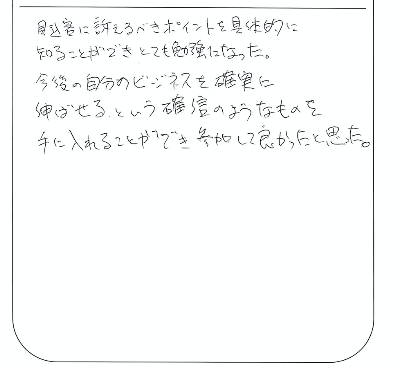 見込客に訴えるべきポイントを具体的に
知ることができとても勉強になった。
今後の自分のビジネスを確実に
伸ばせる、という確信のようなものを
手に入れることができ参加して良かったと思った。